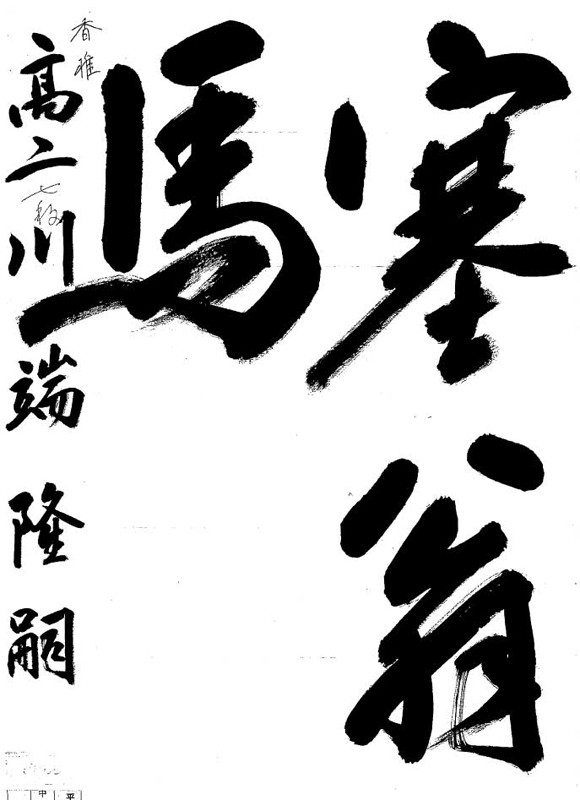 塞翁
馬
香雅
高二 七段 川端隆嗣
中 平